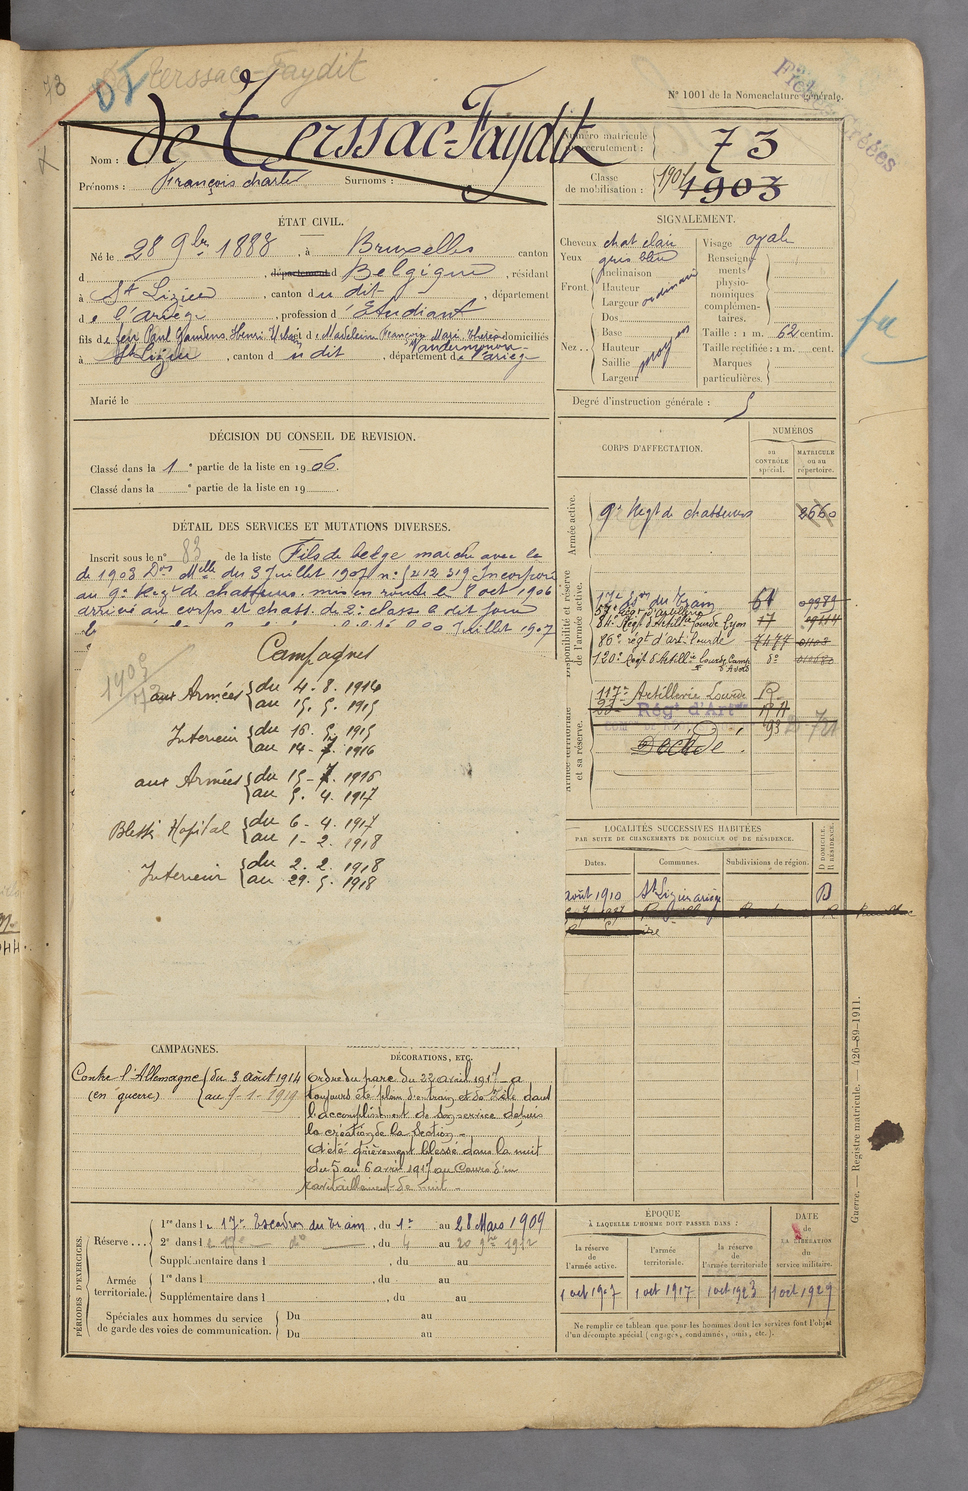 73
de Terssac-Faydit
N° 1001 de la Nomenclature générale.
Nom : de Terssac-Faydit
Prénoms : François Charles Surnoms :
Numéro matricule du recrutement : 73
Classe de mobilisation : 1903
ÉTAT CIVIL.
Né le 28 9bre 1883, à Bruxelles canton
d , département d Belgique, résidant
à St Lizier, canton du dit, département
de l'ariège, profession d'Etudiant
fils de feu Paul Gaudens Henri et de Madeleine Françoise Marie domiciliés
à St Lizier, canton du dit, département de l'ariège
Marié le
SIGNALEMENT.
Cheveux chat clair
Yeux gris bleu
Front. Inclinaison
Hauteur
Largeur ordinaire
Nez .. Dos
Base
Hauteur moyen
Saillie
Largeur
Visage ovale
Renseignements physionomiques complémentaires.
Taille : 1 m. 62 centim.
Taille rectifiée : 1 m. cent.
Marques particulières.
Degré d'instruction générale :
fa
DÉCISION DU CONSEIL DE REVISION.
Classé dans la 1 e partie de la liste en 1906.
Classé dans la e partie de la liste en 19 .
CORPS D'AFFECTATION.
NUMÉROS
au CONTRÔLE spécial.
MATRICULE ou au répertoire.
Armée active.
9e Regt de chasseurs 2660
Disponibilité et réserve de l'armée active.
17e Eon du Train 61
57e Régt d'Artillerie
84e Régt d'Artillie Lourde Lyon 17
86e régt d'art. lourde 7477
120e Regt d'Artillie Lourde
Armée territoriale et sa réserve.
117e Artillerie Lourde R
Régt d'Art
Décédé
DÉTAIL DES SERVICES ET MUTATIONS DIVERSES.
Inscrit sous le n° 83 de la liste Fils de belge marche avec la
de 1903 Don Melle du 3 Juillet 1907 n° 212319 Incorporé
au 9e Regt de chasseurs. mis en route le 8 oct 1906
arrivé au corps et chass. de 2e classe le dit jour
Juillet 1907
1903
73
Campagnes
aux Armées du 4. 8. 1914
au 15. 5. 1915
Interieur du 16. 5. 1915
au 14-7. 1916
aux Armées du 15-7. 1916
au 5. 4. 1917
Blessé Hopital du 6-4. 1917
au 1-2. 1918
Interieur du 2. 2. 1918
au 29. 5. 1918
LOCALITÉS SUCCESSIVES HABITÉES
PAR SUITE DE CHANGEMENTS DE DOMICILE OU DE RÉSIDENCE.
Dates. Communes. Subdivisions de région. D DOMICILE. R RÉSIDENCE.
août 1910 St Lizier ariège D
CAMPAGNES.
Contre l'Allemagne du 3 août 1914
(en guerre) au 9-1-1919
DÉCORATIONS, ETC.
Ordre du parc du 22 avril 1917 - a
toujours été plein d'entrain et de zèle dans
l'accomplissement de son service depuis
la création de la Section -
A été grièvement blessé dans la nuit
du 5 au 6 avril 1917 au Cours d'un
ravitaillement de nuit -
PÉRIODES D'EXERCICES.
Réserve.... 1re dans le 17e Escadron du Train, du 1er au 28 Mars 1909
2e dans le 17e do, du 4 au 20 9bre 1912
Supplémentaire dans l , du au
Armée territoriale. 1re dans l , du au
Supplémentaire dans l , du au
Spéciales aux hommes du service de garde des voies de communication. Du au
Du au
ÉPOQUE
À LAQUELLE L'HOMME DOIT PASSER DANS :
la réserve de l'armée active.
l'armée territoriale.
la réserve de l'armée territoriale
DATE de LA LIBÉRATION du service militaire.
1 oct 1907 1 oct 1917 1 oct 1923 1 oct 1929
Ne remplir ce tableau que pour les hommes dont les services font l'objet
d'un décompte spécial (engagés, condamnés, omis, etc.).
Guerre. — Registre matricule. — 426-89-1911.